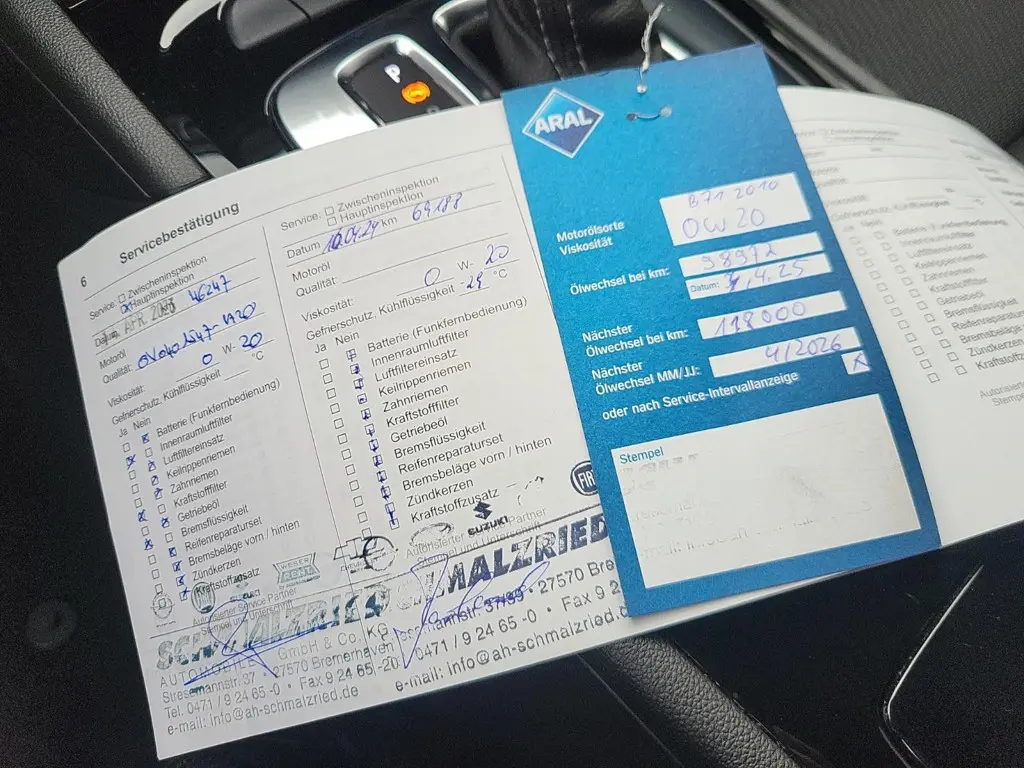 P
6 Servicebestätigung
Service: Zwischeninspektion
Hauptinspektion
APR. 46247
Motoröl
Qualität:
Viskosität: 0 W- 20
Gefrierschutz, Kühlflüssigkeit °C
Ja Nein
Batterie (Funkfernbedienung)
Innenraumluftfilter
Luftfiltereinsatz
Keilrippenriemen
Zahnriemen
Kraftstofffilter
Getriebeöl
Bremsflüssigkeit
Reifenreparaturset
Bremsbeläge vorn / hinten
Zündkerzen
Kraftstoffzusatz
Autorisierter Service Partner
Stempel und Unterschrift
SCHMALZRIED
AUTOMOBILE GmbH & Co. KG
Stresemannstr. 37 • 27570 Bremerhaven
Tel. 0471 / 9 24 65 -0 • Fax 9 24 65 -20
e-mail: info@ah-schmalzried.de
Service: Zwischeninspektion
Hauptinspektion
Datum 10.04.24 km 69188
Motoröl
Qualität:
Viskosität: 0 W- 20
Gefrierschutz, Kühlflüssigkeit -28 °C
Ja Nein
Batterie (Funkfernbedienung)
Innenraumluftfilter
Luftfiltereinsatz
Keilrippenriemen
Zahnriemen
Kraftstofffilter
Getriebeöl
Bremsflüssigkeit
Reifenreparaturset
Bremsbeläge vorn / hinten
Zündkerzen
Kraftstoffzusatz
SUZUKI
Autorisierter Partner
Stempel und Unterschrift
SCHMALZRIED
27570 Bre
0471 / 9 24 65 -0 • Fax 9 2
e-mail: info@ah-schmalzried.d
FIAT
ARAL
Motorölsorte B71 2010
Viskosität 0W20
Ölwechsel bei km: 98972
Datum: 4.25
Nächster
Ölwechsel bei km: 118000
Nächster
Ölwechsel MM/JJ: 4/2026
oder nach Service-Intervallanzeige X
Stempel
Zwischeninspektion
Hauptinspektion
Viskosität:
Gefrierschutz, Kühlflüssigkeit
Ja Nein
Batterie (Funkfernb
Innenraumluftfilter
Luftfiltereinsatz
Keilrippenriemen
Zahnriemen
Kraftstofffilter
Getriebeöl
Bremsflüssigkeit
Reifenreparatur
Bremsbeläge
Zündkerzen
Kraftstoffz
Autorisier
Stempe